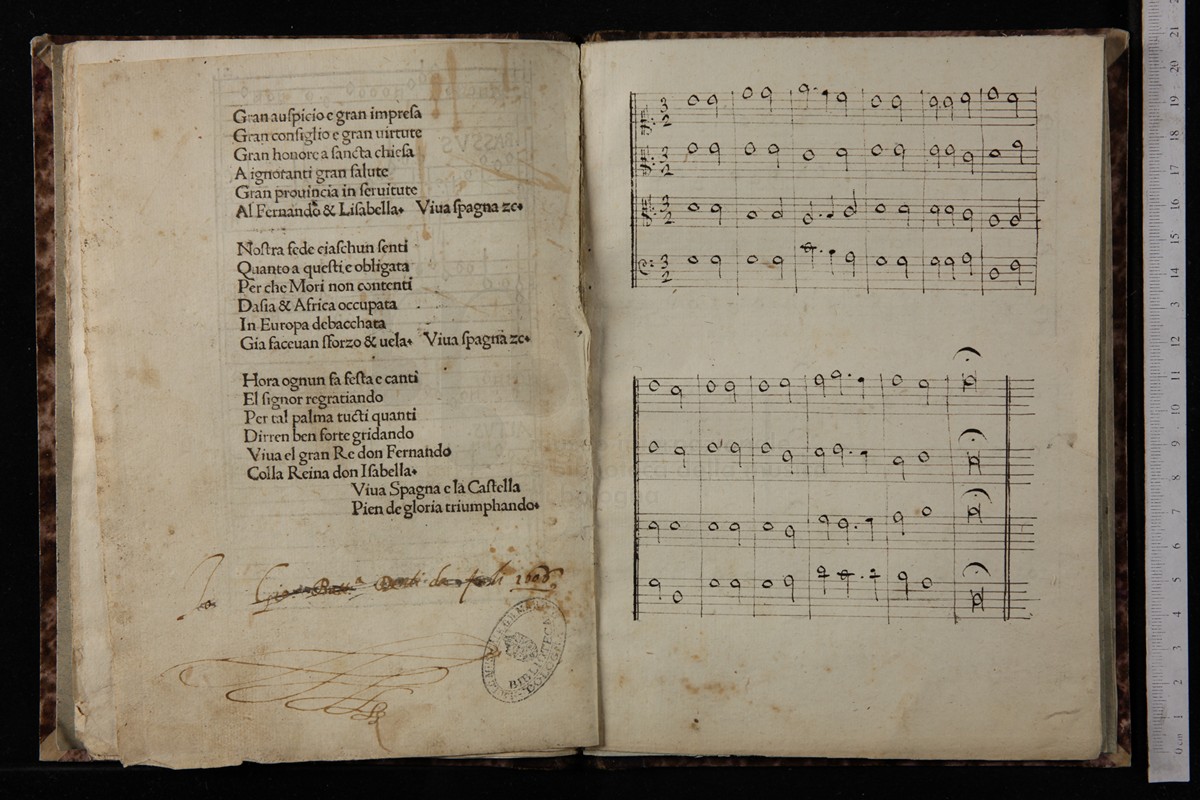 Gran auſpicio e gran impreſa
Gran conſiglio e gran uirtute
Gran honore a ſancta chieſa
A ignoranti gran ſalute
Gran prouincia in ſeruitute
Al Fernando & Liſabella. Viua ſpagna ⁊c.
Noſtra fede ciaſchun ſenti
Quanto a queſti e obligata
Per che Mori non contenti
Daſia & Africa occupata
In Europa debacchata
Gia faceuan ſforzo & uela. Viua ſpagna ⁊c.
Hora ognun fa feſta e canti
El ſignor regratiando
Per tal palma tucti quanti
Dirren ben forte gridando
Viua el gran Re don Fernando
Colla Reina don Iſabella.
Viua Spagna e la Caſtella
Pien de gloria triumphando.
Io
1606
BIBLIOTECA
3
2
3
2
3
2
3
2